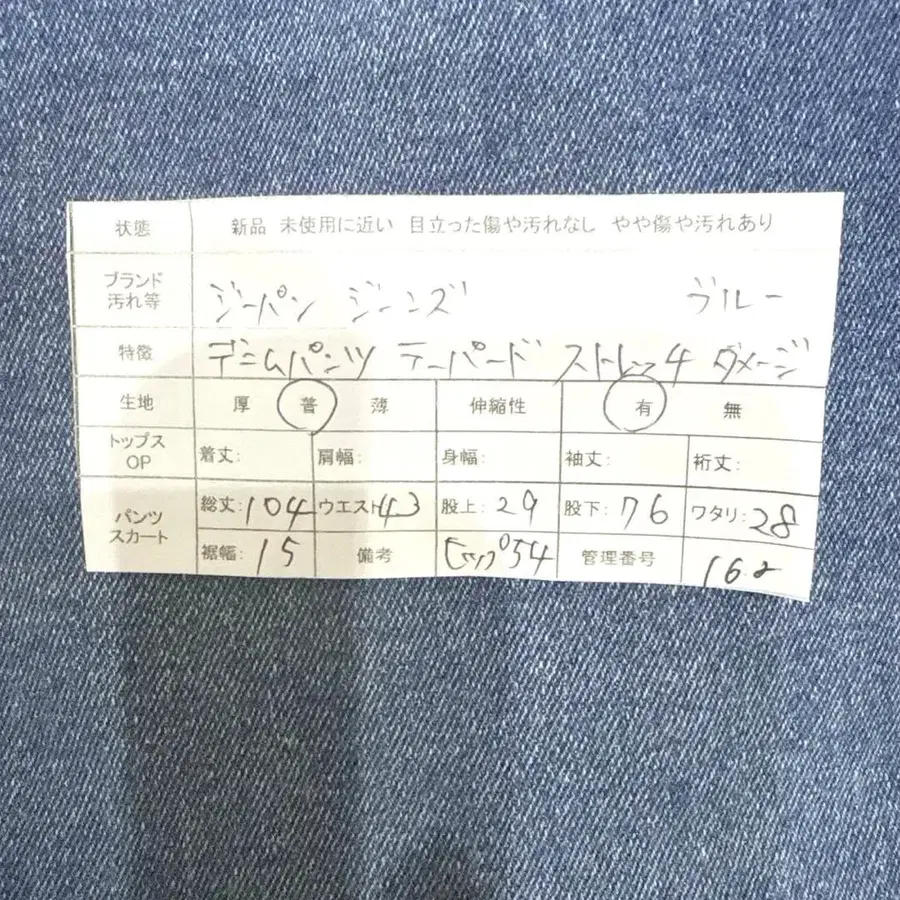 状態 新品 未使用に近い 目立った傷や汚れなし やや傷や汚れあり
ブランド
汚れ等 ジーパン ジーンズ ブルー
特徴 デニムパンツ テーパード ストレッチ ダメージ
生地 厚 普 薄 伸縮性 有 無
トップス
OP 着丈: 肩幅: 身幅: 袖丈: 裄丈:
パンツ
スカート 総丈:104 ウエスト43 股上:29 股下:76 ワタリ:28
裾幅:15 備考 ヒップ54 管理番号